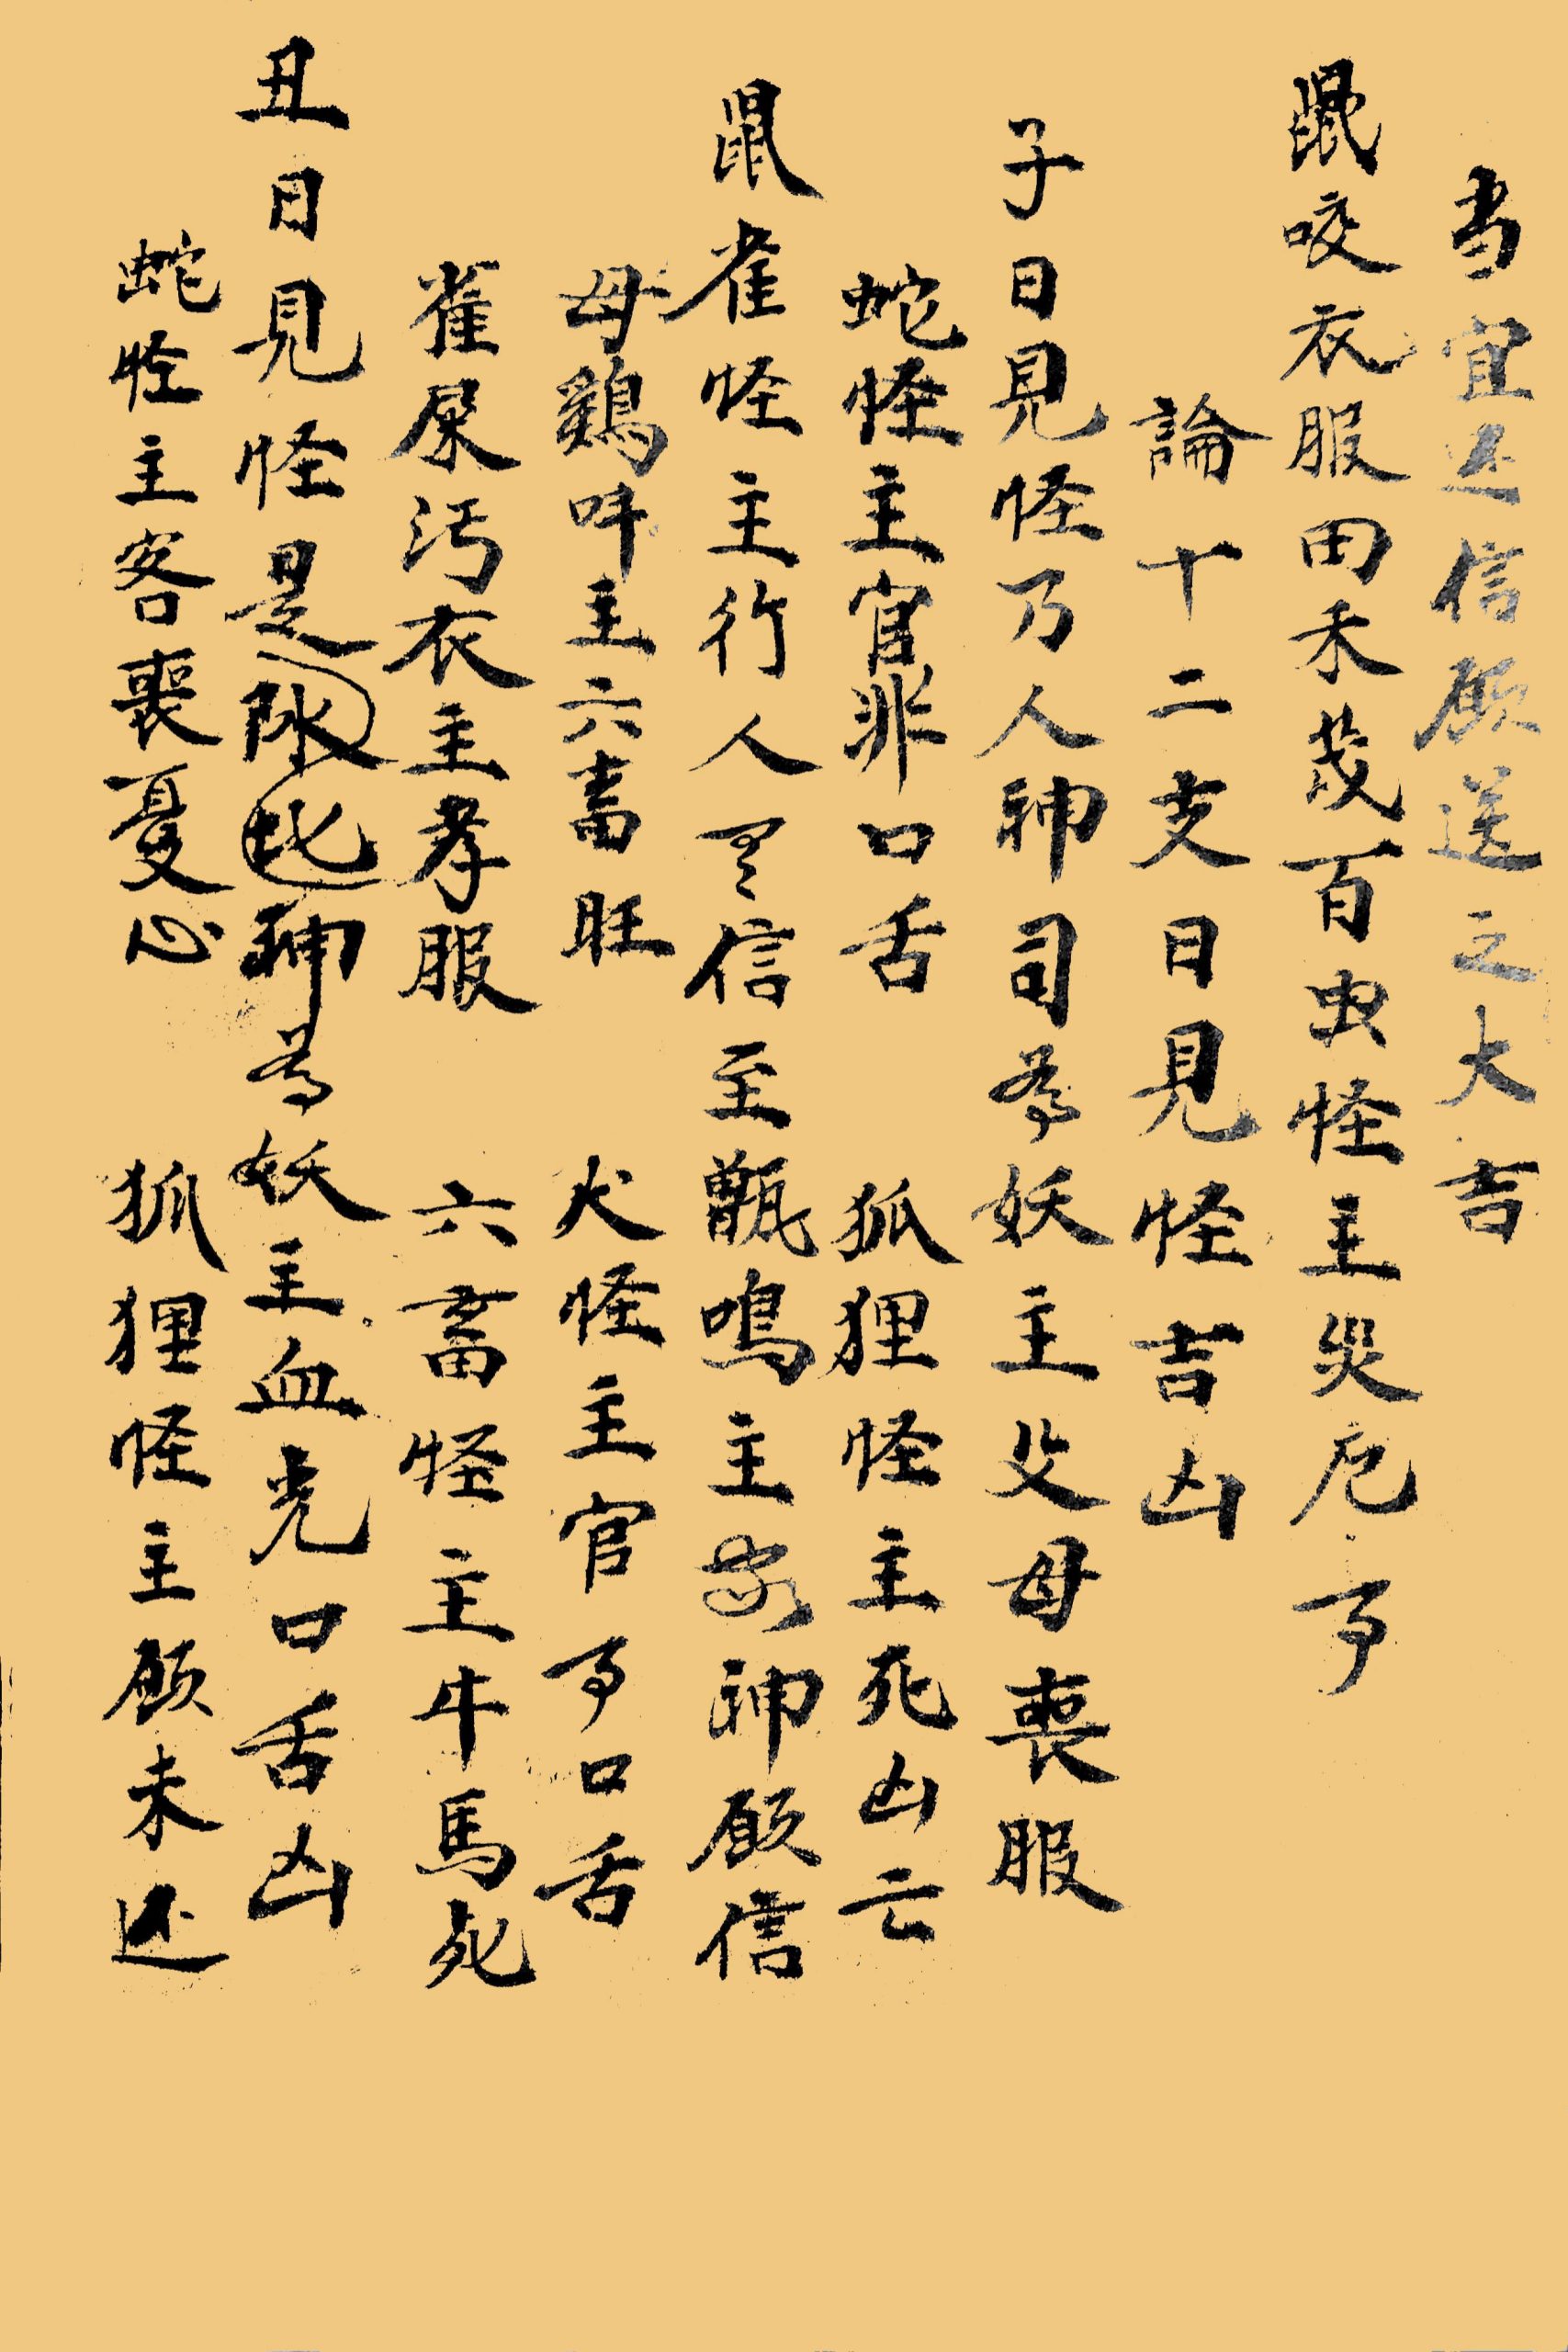 当宜还信愿送之大吉
鼠咬衣服田禾茂百虫怪主災厄事
論十二支日見怪吉凶
子日見怪乃人神司為妖主父母喪服
蛇怪主官非口舌 狐狸怪主死凶亡
鼠雀怪主行人信至甑鳴主家神願信
母鷄叫主六畜旺 火怪主官事口舌
雀屎污衣主孝服 六畜怪主牛馬死
丑日見怪是神為妖主血光口舌凶
蛇怪主客喪憂心 狐狸怪主願未还